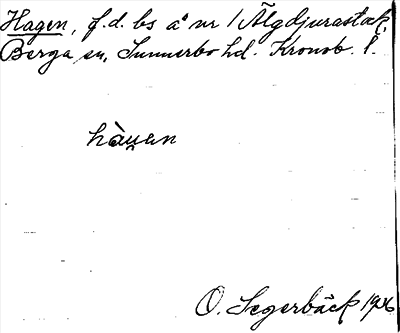 Hagen, f.d. bs å nr 1 Älgdjurastak,
Berga sn, Sunnerbo hd. Kronob. l.
hàu̯an
O. Segerbäck 1926